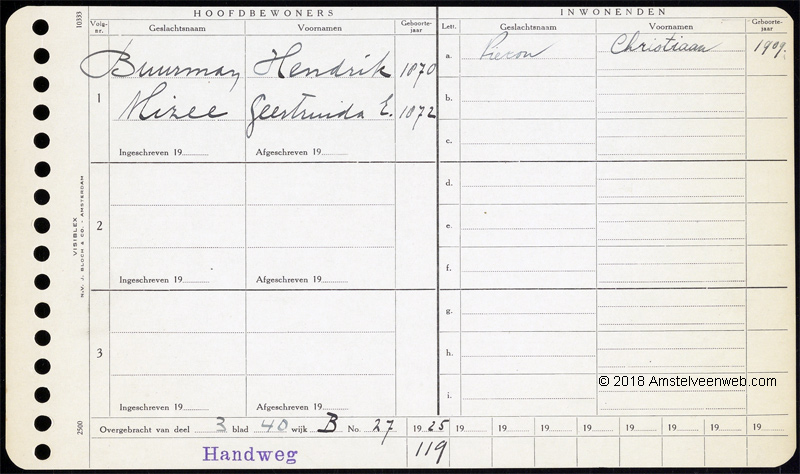 HOOFDBEWONERS
INWONENDEN
10333
Volg-nr.
Geslachtsnaam
Voornamen
Geboorte-jaar
Lett.
Geslachtsnaam
Voornamen
Geboorte-jaar
1
Buurman Hendrik 1870
Mizee Geertruida E. 1872
Ingeschreven 19
Afgeschreven 19
a. Pieron Christiaan 1909.
b.
c.
2
Ingeschreven 19
Afgeschreven 19
d.
e.
f.
3
Ingeschreven 19
Afgeschreven 19
g.
h.
i.
VISIBLEX
N.V. J. BLOCH & CO. - AMSTERDAM
2500
© 2018 Amstelveenweb.com
Overgebracht van deel 3 blad 40 wijk B No. 27
19 25 19 19 19 19 19 19 19 19
Handweg
119